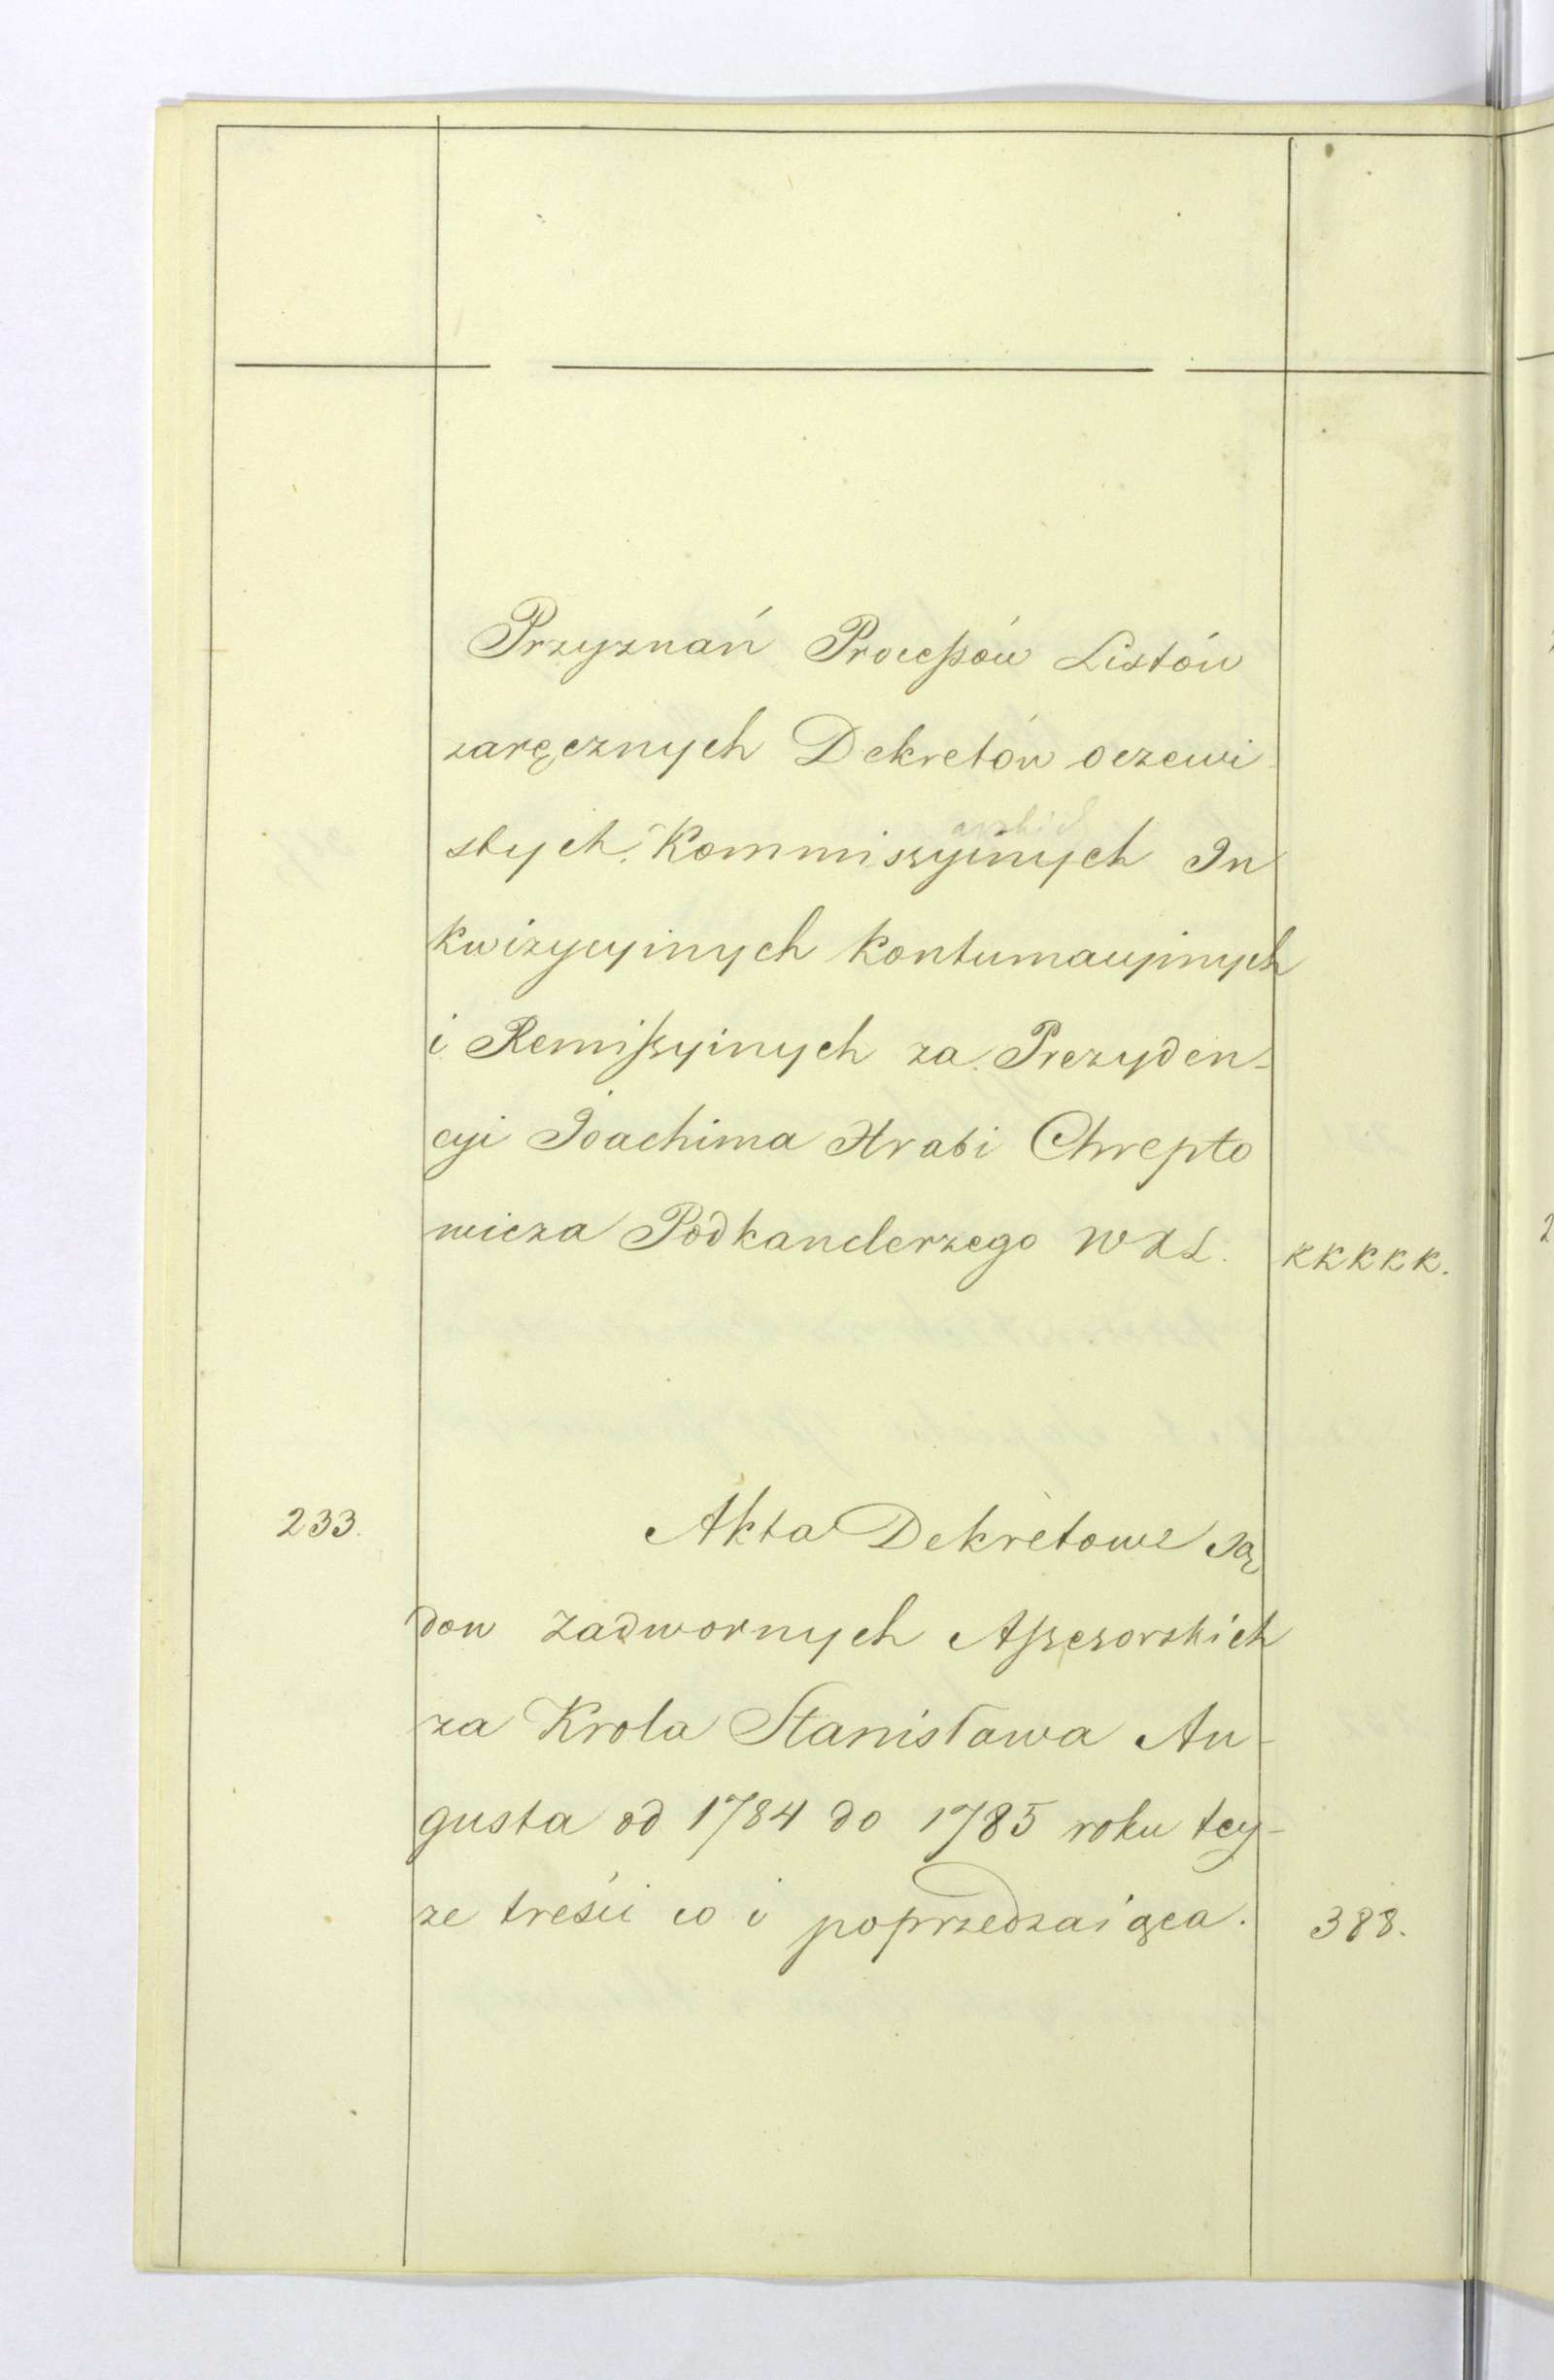 Przyznań Processów Listów
zaręcznych Dekretów oczewi-
stych, Kommissyinych In
kwizycyinych Kontumacyinych
i Remissyinych za Prezyden-
cyi Joachima Hrabi Chrepto
wicza Podkanclerzego WXL. KKKKK.
233. Akta Dekretowe Są
dow Zadwornych Assesorskich
za Krola Stanisława Au-
gusta od 1784 do 1785 roku tey-
że treści co i poprzedzaiąca. 388.